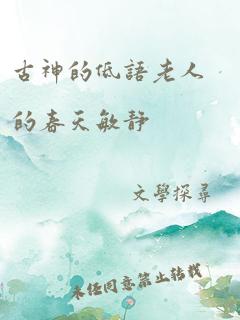 古神的低語老人
的春天敏靜
文學探尋
未經同意禁止轉載